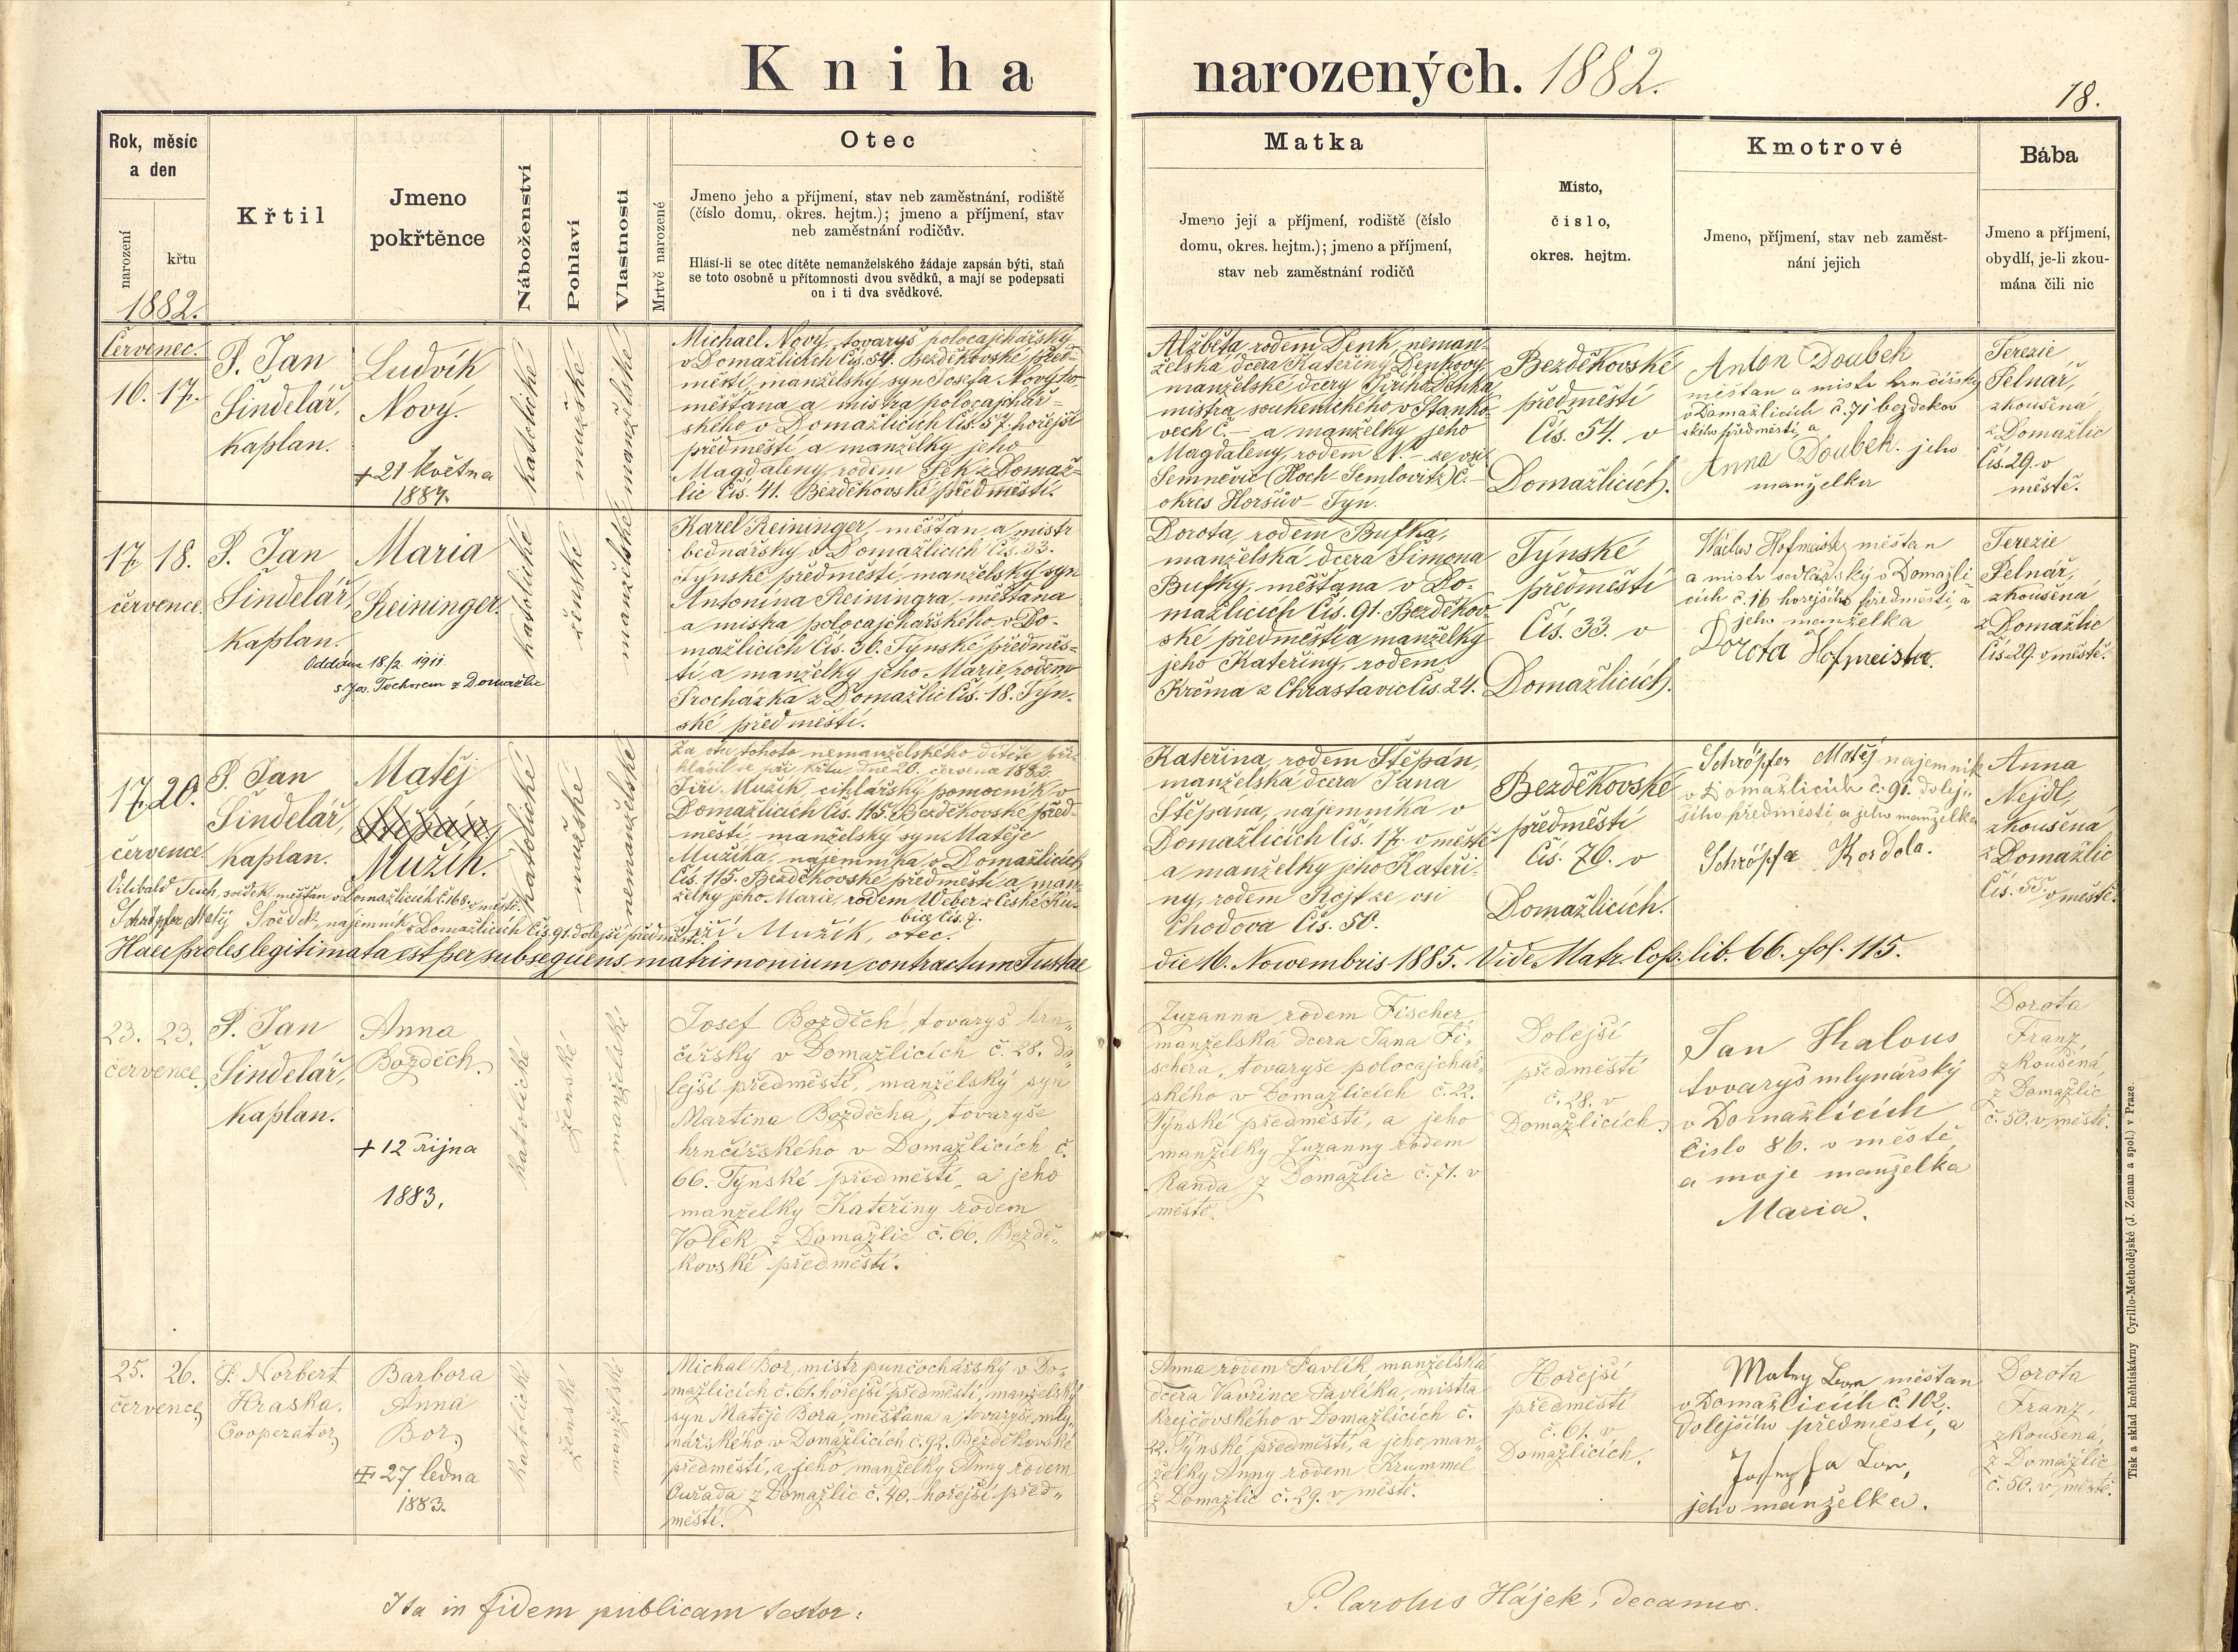 Kniha narozených. 1882.
18.
Rok, měsíc
a den
narození
křtu
1882.
Křtil
Jmeno
pokřtěnce
Náboženství
Pohlaví
Vlastnosti
Mrtvě narozené
Otec
Jmeno jeho a příjmení, stav neb zaměstnání, rodiště
(číslo domu, okres. hejtm.); jmeno a příjmení, stav
neb zaměstnání rodičův.
Hlásí-li se otec dítěte nemanželského žádaje zapsán býti, staň
se toto osobně u přítomnosti dvou svědků, a mají se podepsati
on i ti dva svědkové.
Matka
Jmeno její a příjmení, rodiště (číslo
domu, okres. hejtm.); jmeno a příjmení,
stav neb zaměstnání rodičů
Místo,
číslo,
okres. hejtm.
Kmotrové
Jmeno, příjmení, stav neb zaměst-
nání jejich
Bába
Jmeno a příjmení,
obydlí, je-li zkou-
mána čili nic
Červenec.
16. 17.
P. Jan
Šindelář,
kaplan.
Ludvík
Nový.
+ 21 května
1887.
katolické
mužské
manželské
Michael Nový, tovaryš polocajchářský
v Domažlicích Čís. 54. Bezděkovské před-
městí, manželský syn Josefa Nového
měšťana a mistra polocajchář-
ského v Domažlicích Čís. 57. hořejší
předměstí a manželky jeho
Magdaleny rodem z Domaž-
lic Čís. 41. Bezděkovské předměstí.
Alžběta, rodem Denk, neman-
želská dcera Kateřiny Denkovy
manželské dcery Jiřího Denka
mistra soukenického v Staňko-
vech č. — a manželky jeho
Magdaleny rodem N. — ze vsi
Semněvic (Hoch-Semlovitz) Č. —
okres Horšův-Týn.
Bezděkovské
předměstí
Čís. 54. v
Domažlicích.
Anton Doubek
měštan a mistr hrnčířský
v Domažlicích č. 71 bezdekov
ského předměstí, a
Anna Doubek. jeho
manželka
Terezie
Pelnář,
zkoušená
z Domažlic
Čís. 29. v
městě.
17. 18.
července.
P. Jan
Šindelář,
kaplan.
Maria
Reininger.
Oddána 18/2. 1911.
s Jos. Tochorem z Domažlic
katolické
ženské
manželské
Karel Reininger, měšťan a mistr
bednářský v Domažlicích Čís. 33.
Týnské předměstí, manželský syn
Antonína Reiningra, měšťana
a mistra polocajchářského v Do-
mažlicích Čís. 36. Týnské předměs-
tí, a manželky jeho Marie, rodem
Procházka z Domažlic Čís. 18. Týn-
ské předměstí.
Dorota, rodem Bufka,
manželská dcera Šimona
Bufky, měšťana v Do-
mažlicích Čís. 91. Bezděkov-
ské předměstí a manželky
jeho Kateřiny, rodem
Krčma z Chrastavic Čís. 24.
Týnské
předměstí
Čís. 33. v
Domažlicích.
Václav Hofmeister měštan
a mistr sedlářský v Domažli
cích č. 16 hořejšího předměstí, a
jeho manželka
Dorota Hofmeister.
Terezie
Pelnář,
zkoušená
z Domažlic
Čís. 29. v městě.
17. 20.
července
P. Jan
Šindelář,
kaplan.
Matěj
Štěpán,
Mužík.
katolické
mužské
nemanželské
Za otce tohoto nemanželského dítěte při-
hlásil se při křtu dne 20. července 1882.
Jiří Mužík, cihlářský pomocník v
Domažlicích Čís. 115. Bezděkovské před-
městí, manželský syn Matěje
Mužíka, nájemníka v Domažlicích
Čís. 115. Bezděkovské předměstí a man-
želky jeho Marie, rodem Weber z České Ku-
bice Čís. 7.
Jiří Mužík, otec.
Vilibald Tesch, svědek, měšťan v Domažlicích č. 168. v městě.
Schröpfer Matěj Svědek, nájemník v Domažlicích Čís. 91. dolejší předměstí.
Kateřina, rodem Štěpán,
manželská dcera Jana
Štěpána, nájemníka v
Domažlicích Čís. 17. v městě
a manželky jeho Kateři-
ny, rodem Rojt ze vsi
Chodova Čís. 50.
Bezděkovské
předměstí
Čís. 76. v
Domažlicích.
Schröpfer Matěj nájemník
v Domažlicích č. 91. dolej-
šího předměstí, a jeho manželka
Schröpfer Kordola.
Anna
Nejdl,
zkoušená
z Domažlic
Čís. 55. v městě.
Haec proles legitimata est per subsequens matrimonium contractum Tustae die 16. Nowembris 1885. Vide Matr. Cop. lib. 66. fol. 115.
23. 23.
července.
P. Jan
Šindelář,
kaplan.
Anna
Bozděch.
+ 12 října
1883.
katolické
ženské
manželské
Josef Bozděch, tovaryš hrn-
čířský v Domažlicích č. 28. do-
lejší předměstí, manželský syn
Martina Bozděcha, tovaryše
hrnčířského v Domažlicích č.
66. Týnské předměstí, a jeho
manželky Kateřiny rodem
Volek z Domažlic č. 66. Bezdě-
kovské předměstí.
Zuzanna rodem Fischer,
manželská dcera Jana Fi-
schera, tovaryše polocajchář-
ského v Domažlicích č. 22.
Týnské předměstí, a jeho
manželky Zuzanny rodem
Randa z Domažlic č. 71. v
městě.
Dolejší
předměstí
č. 28. v
Domažlicích.
Jan Thalous
tovaryš mlynářský
v Domažlicích
Číslo 86. v městě,
a moje manželka
Maria.
Dorota
Franz,
zkoušená,
z Domažlic
č. 50. v městě.
25. 26.
července
P. Norbert
Hraska,
Cooperator.
Barbora
Anna
Bor.
+ 27 ledna
1883.
katolické
ženské
manželské
Michal Bor, mistr punčochářský v Do-
mažlicích č. 61. hořejší předměstí, manželský
syn Matěje Bora, měšťana a tovaryše mly-
nářského v Domažlicích č. 92. Bezděkovské
předměstí, a jeho manželky Anny rodem
Ouřada z Domažlic č. 40. hořejší před-
městí.
Anna rodem Pavlík, manželská
dcera Vavřince Pavlíka, mistra
krejčovského v Domažlicích č.
22. Týnské předměstí, a jeho man-
želky Anny rodem Krummel
z Domažlic č. 29. v městě.
Hořejší
předměstí
č. 61. v
Domažlicích.
měštan
v Domažlicích č. 102.
Dolejšího předměstí, a
jeho manželka.
Dorota
Franz,
zkoušená,
z Domažlic
č. 50. v městě.
Ita in fidem publicam testor:
P. Carolus Hájek, decanus.
Tisk a sklad knihtiskárny Cyrillo-Methodějské (J. Zeman a spol.) v Praze.